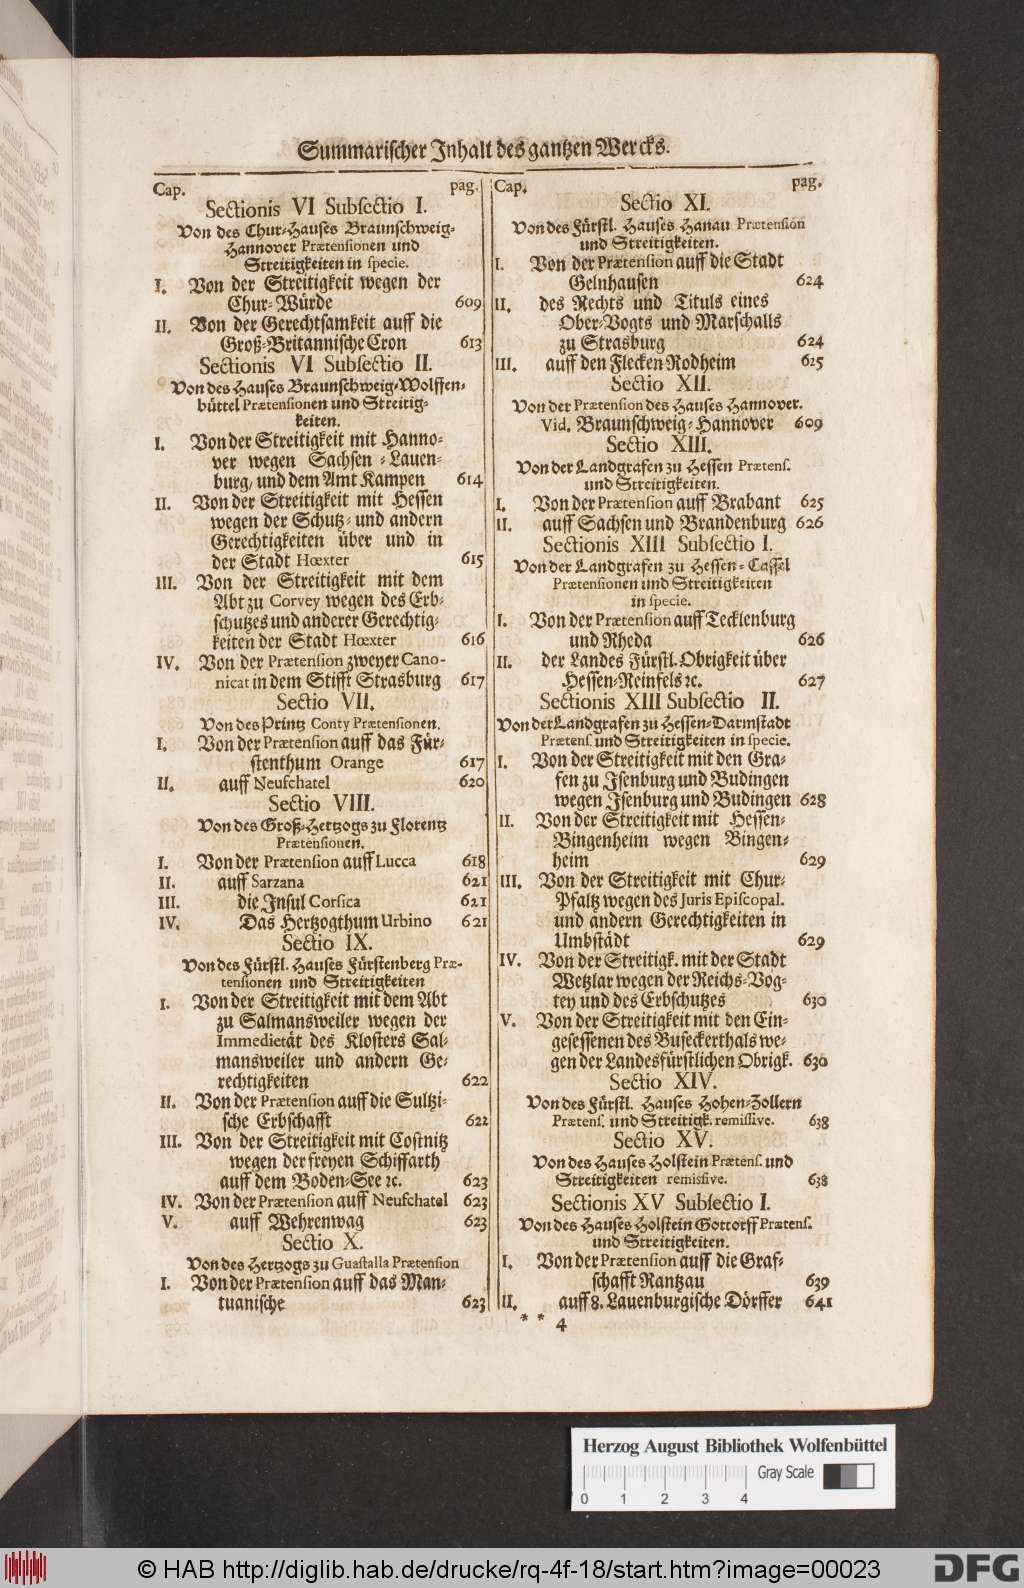 Summarischer Inhalt des gantzen Wercks.
Cap. pag.
Sectionis VI Subsectio I.
Von des Chur-Hauses Braunschweig-
Hannover Prætensionen und
Streitigkeiten in specie.
I. Von der Streitigkeit wegen der
Chur-Würde 609
II. Von der Gerechtsamkeit auff die
Groß-Britannische Cron 613
Sectionis VI Subsectio II.
Von des Hauses Braunschweig-Wolffen-
büttel Prætensionen und Streitig-
keiten.
I. Von der Streitigkeit mit Hanno-
ver wegen Sachsen-Lauen-
burg, und dem Amt Kampen 614
II. Von der Streitigkeit mit Hessen
wegen der Schutz- und andern
Gerechtigkeiten über und in
der Stadt Hœxter 615
III. Von der Streitigkeit mit dem
Abt zu Corvey wegen des Erb-
schutzes und anderer Gerechtig-
keiten der Stadt Hœxter 616
IV. Von der Prætension zweyer Cano-
nicat in dem Stifft Strasburg 617
Sectio VII.
Von des Printz Conty Prætensionen.
I. Von der Prætension auff das Für-
stenthum Orange 617
II. auff Neufchatel 620
Sectio VIII.
Von des Groß-Hertzogs zu Florentz
Prætensionen.
I. Von der Prætension auff Lucca 618
II. auff Sarzana 621
III. die Insul Corsica 621
IV. Das Hertzogthum Urbino 621
Sectio IX.
Von des Fürstl. Hauses Fürstenberg Præ-
tensionen und Streitigkeiten
I. Von der Streitigkeit mit dem Abt
zu Salmansweiler wegen der
Immedietät des Klosters Sal-
mansweiler und andern Ge-
rechtigkeiten 622
II. Von der Prætension auff die Sultzi-
sche Erbschafft 622
III. Von der Streitigkeit mit Costnitz
wegen der freyen Schiffarth
auff dem Boden-See ꝛc. 623
IV. Von der Prætension auff Neufchatel 623
V. auff Wehrenwag 623
Sectio X.
Von des Hertzogs zu Guastalla Prætension
I. Von der Prætension auff das Man-
tuanische 623
Cap. pag.
Sectio XI.
Von des Fürstl. Hauses Hanau Prætension
und Streitigkeiten.
I. Von der Prætension auff die Stadt
Gelnhausen 624
II. des Rechts und Tituls eines
Ober-Vogts und Marschalls
zu Strasburg 624
III. auff den Flecken Rodheim 625
Sectio XII.
Von der Prætension des Hauses Hannover.
Vid. Braunschweig-Hannover 609
Sectio XIII.
Von der Landgrafen zu Hessen Prætens.
und Streitigkeiten.
I. Von der Prætension auff Brabant 625
II. auff Sachsen und Brandenburg 626
Sectionis XIII Subsectio I.
Von der Landgrafen zu Hessen-Cassel
Prætensionen und Streitigkeiten
in specie.
I. Von der Prætension auff Tecklenburg
und Rheda 626
II. der Landes Fürstl. Obrigkeit über
Hessen-Reinfels ꝛc. 627
Sectionis XIII Subsectio II.
Von der Landgrafen zu Hessen-Darmstadt
Prætens. und Streitigkeiten in specie.
I. Von der Streitigkeit mit den Gra-
fen zu Isenburg und Budingen
wegen Isenburg und Budingen 628
II. Von der Streitigkeit mit Hessen-
Bingenheim wegen Bingen-
heim 629
III. Von der Streitigkeit mit Chur-
Pfaltz wegen des Juris Episcopal.
und andern Gerechtigkeiten in
Umbstädt 629
IV. Von der Streitigk. mit der Stadt
Wetzlar wegen der Reichs-Vog-
tey und des Erbschutzes 630
V. Von der Streitigkeit mit den Ein-
gesessenen des Buseckerthals we-
gen der Landesfürstlichen Obrigk. 630
Sectio XIV.
Von des Fürstl. Hauses Hohen-Zollern
Prætens. und Streitigk. remissive. 638
Sectio XV.
Von des Hauses Holstein Prætens. und
Streitigkeiten remissive. 638
Sectionis XV Subsectio I.
Von des Hauses Holstein Gottorff Prætens.
und Streitigkeiten.
I. Von der Prætension auff die Graf-
schafft Rantzau 639
II. auff 8. Lauenburgische Dörffer 641
* * 4
Herzog August Bibliothek Wolfenbüttel
Gray Scale
0 1 2 3 4
© HAB http://diglib.hab.de/drucke/rq-4f-18/start.htm?image=00023
DFG